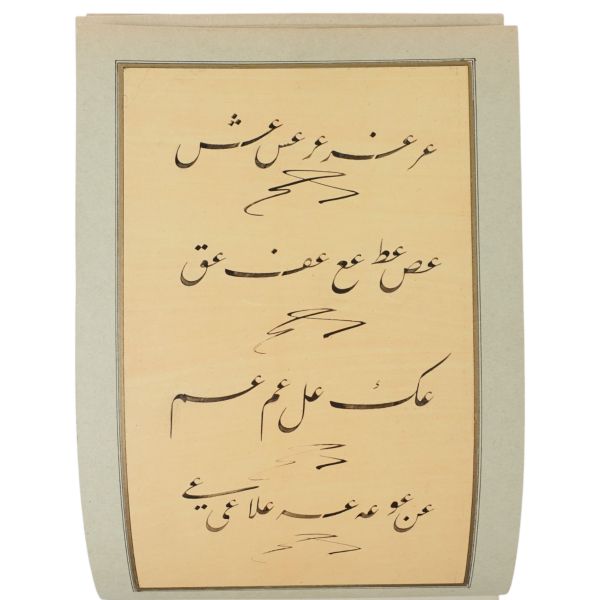 عر عر عر عس عش
عص عط عع عف عق
عک عل عم عم
عن عو عه عه علا عی عی